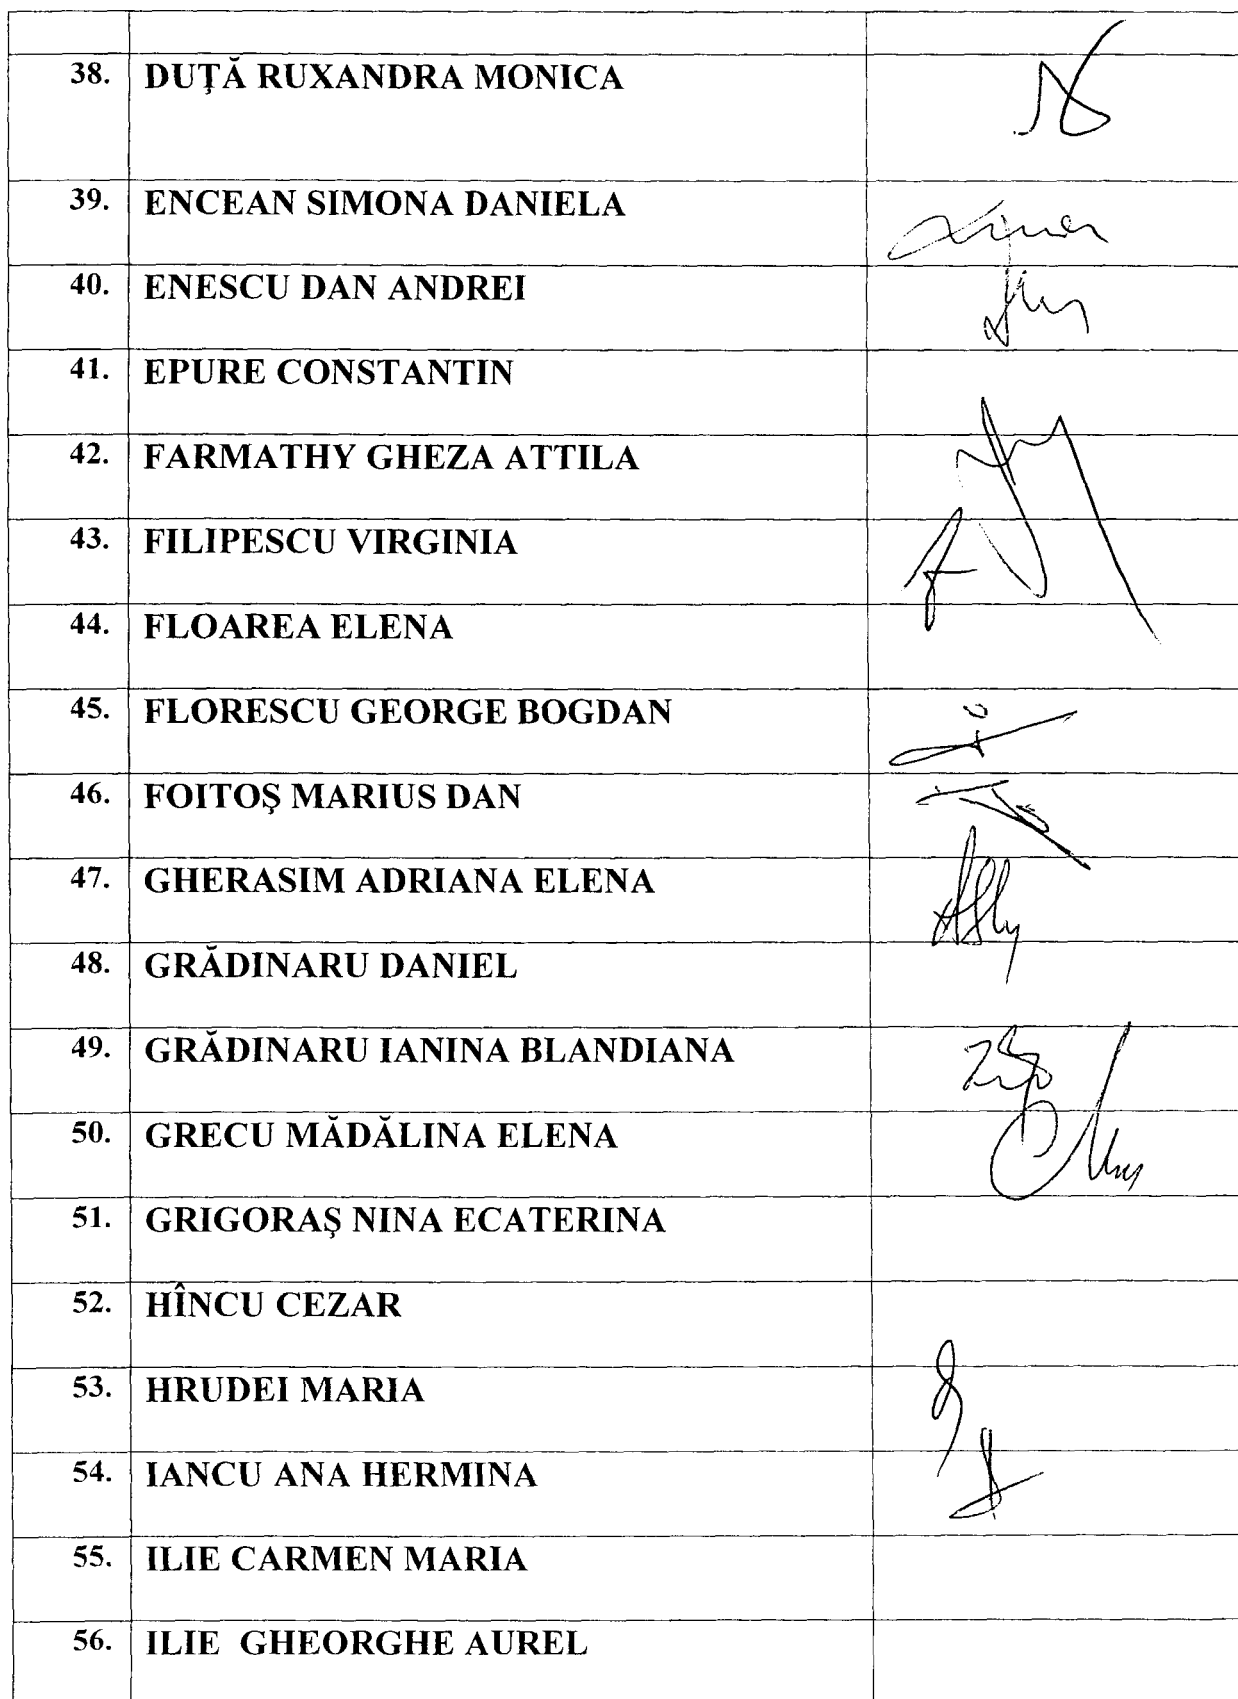 38. DUŢĂ RUXANDRA MONICA
39. ENCEAN SIMONA DANIELA
40. ENESCU DAN ANDREI
41. EPURE CONSTANTIN
42. FARMATHY GHEZA ATTILA
43. FILIPESCU VIRGINIA
44. FLOAREA ELENA
45. FLORESCU GEORGE BOGDAN
46. FOITOŞ MARIUS DAN
47. GHERASIM ADRIANA ELENA
48. GRĂDINARU DANIEL
49. GRĂDINARU IANINA BLANDIANA
50. GRECU MĂDĂLINA ELENA
51. GRIGORAŞ NINA ECATERINA
52. HÎNCU CEZAR
53. HRUDEI MARIA
54. IANCU ANA HERMINA
55. ILIE CARMEN MARIA
56. ILIE GHEORGHE AUREL